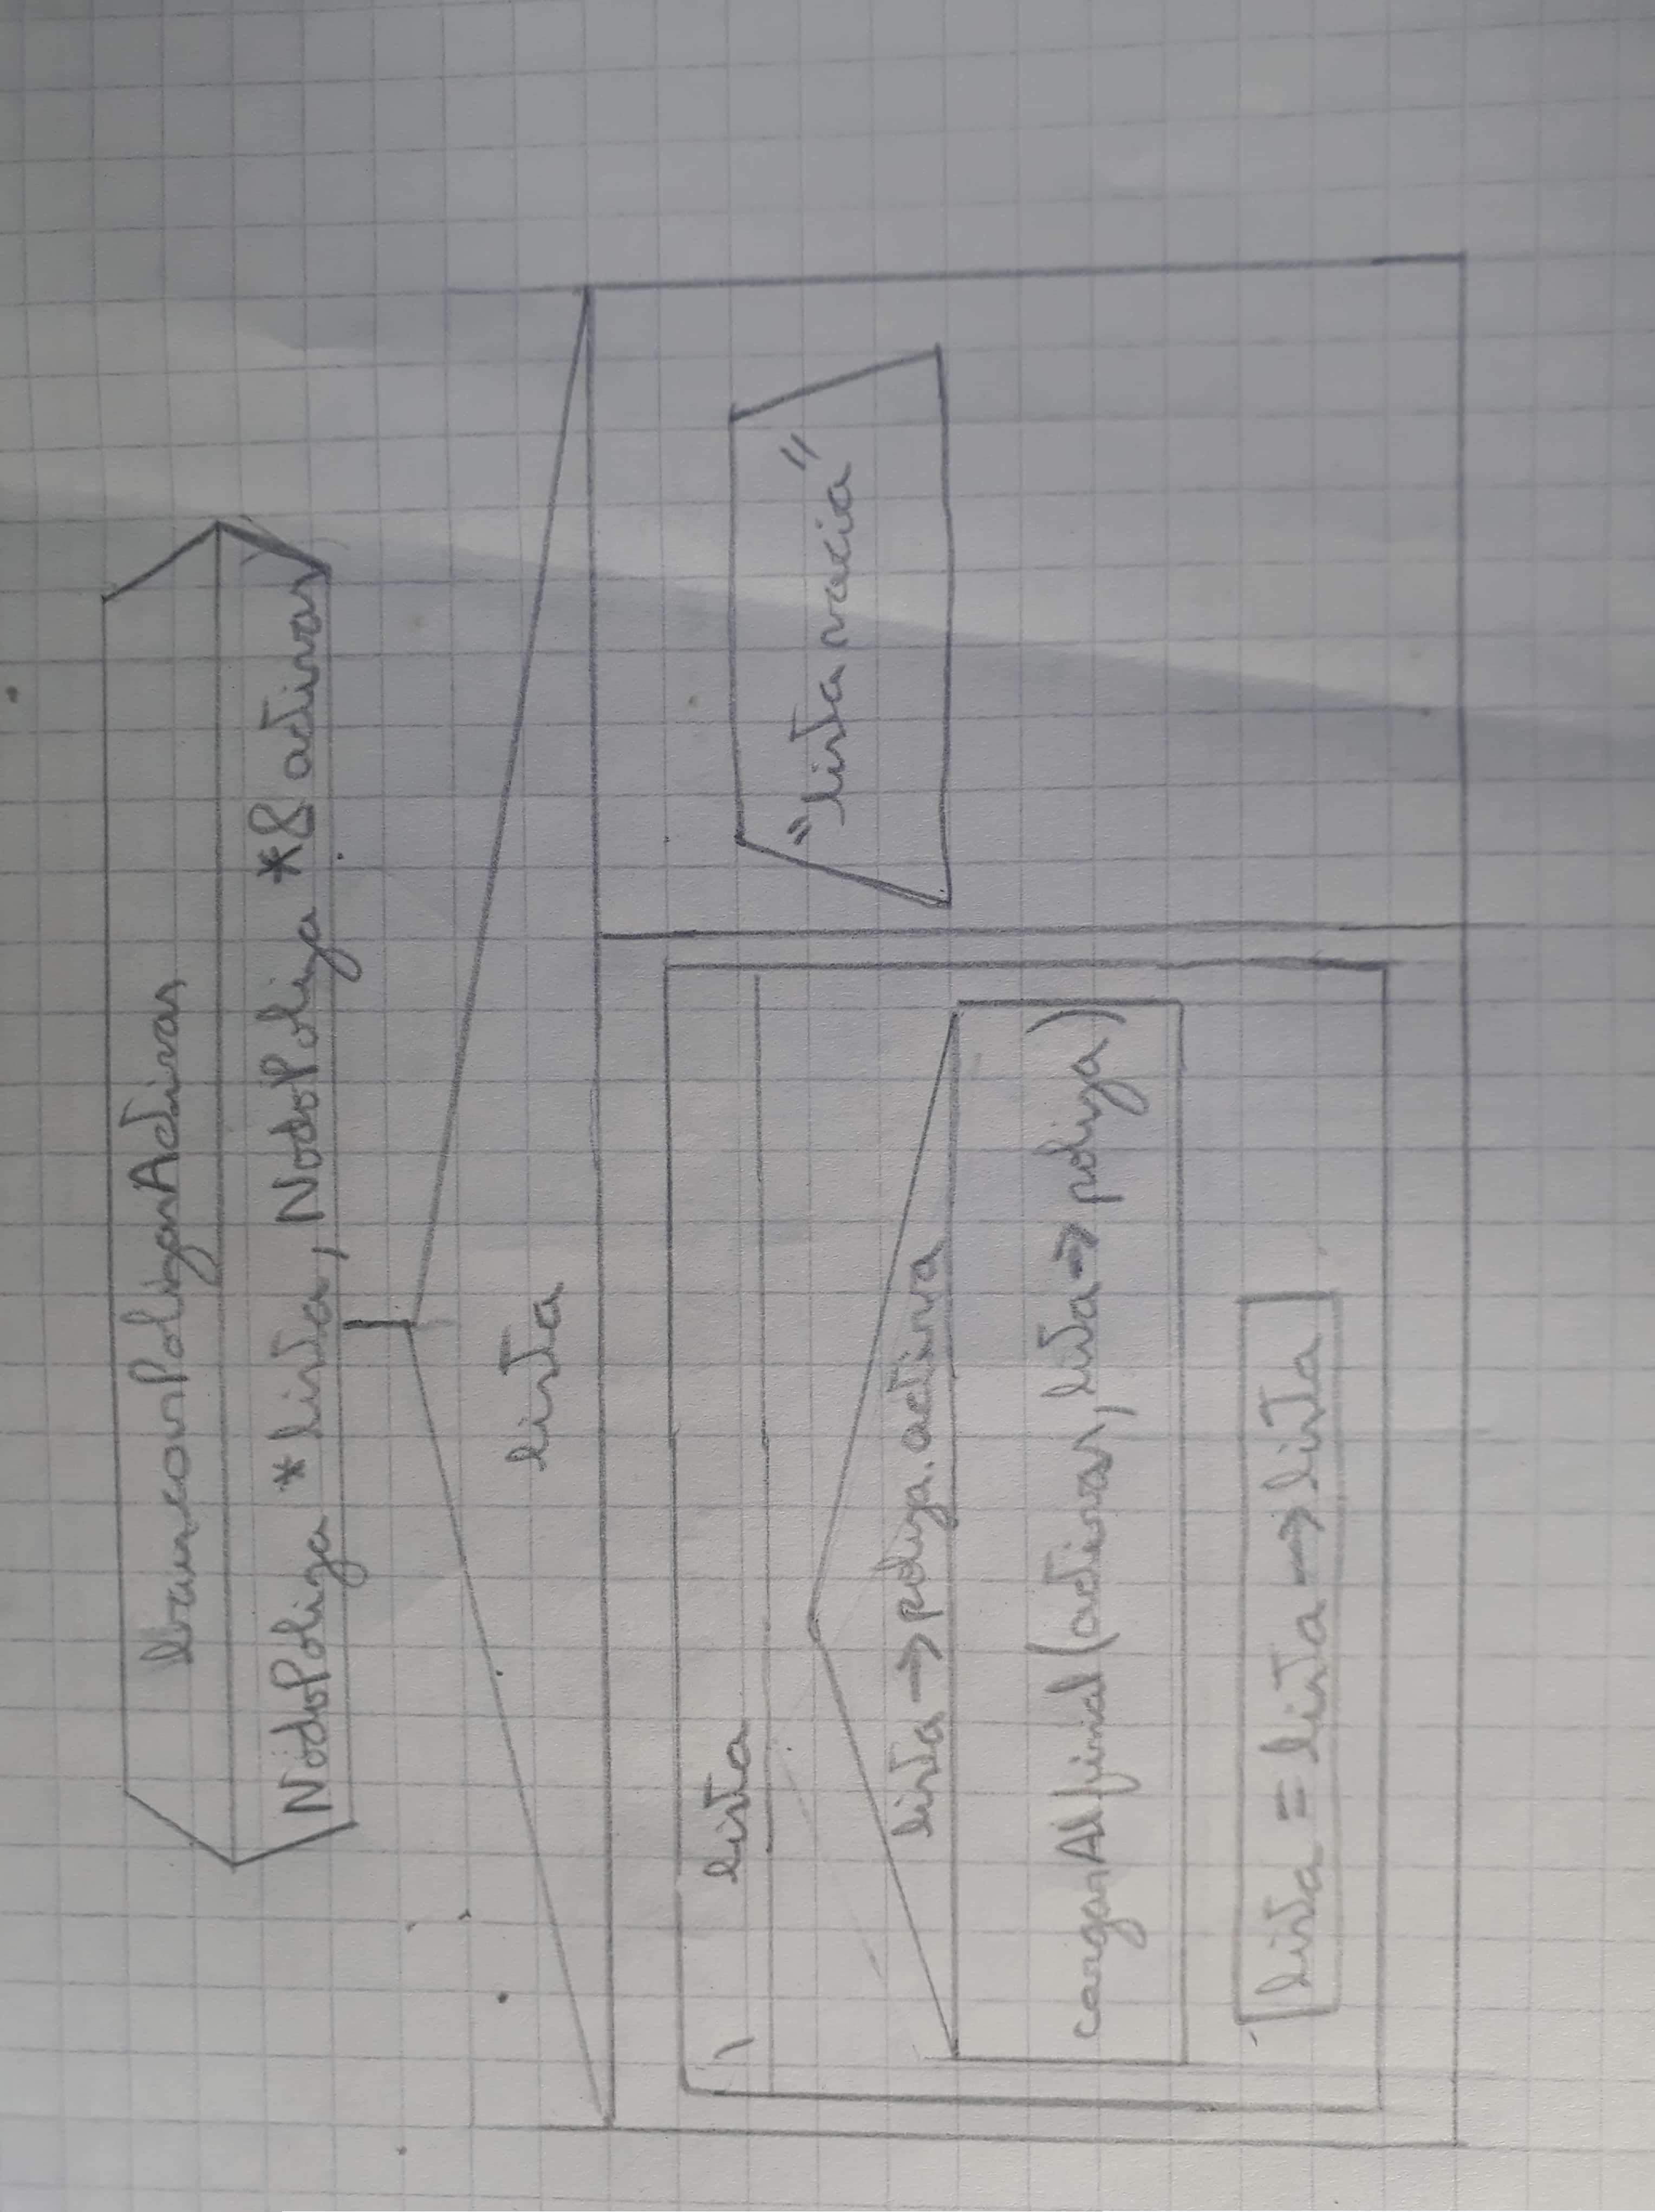 buscarPolizasActivas
NodoPoliza *lista, NodoPoliza *& activas
lista
lista
"lista vacia"
lista → poliza.activa
cargarAlfinal (activas, lista → poliza)
lista = lista → lista